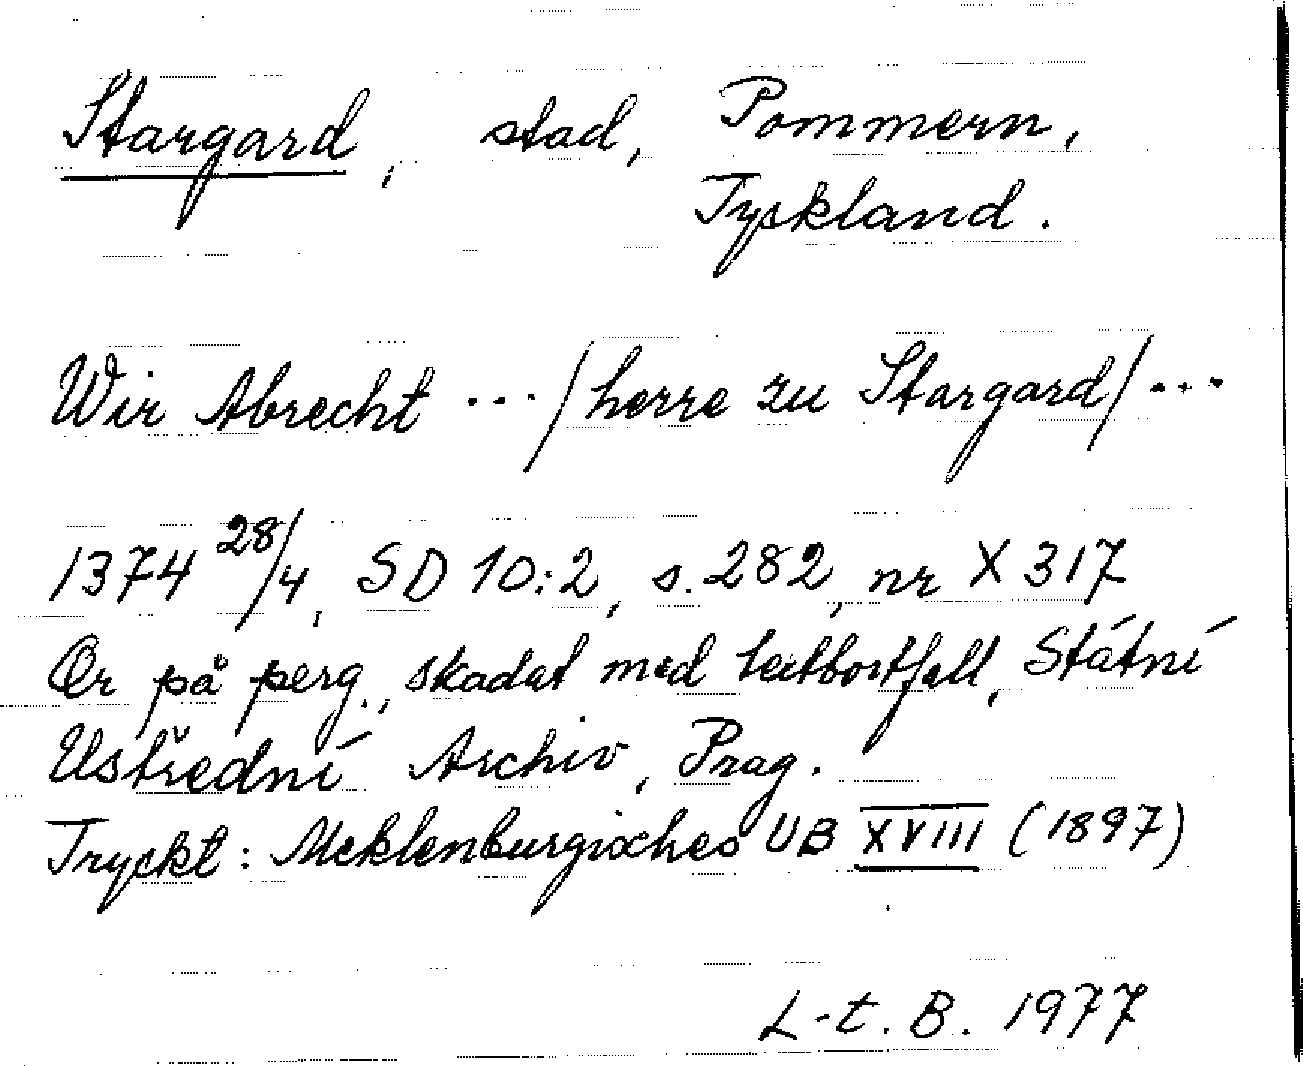 Stargard, stad, Pommern,
Tyskland.
Wir Abrecht ... / herre zu Stargard / ...
1374 28/4, SD 10:2, s. 282, nr X 317
Or på perg., skadat med textbortfall, Státní
Ustřední Archiv, Prag.
Tryckt: Meklenburgisches UB XVIII (1897)
L-t. B. 1977